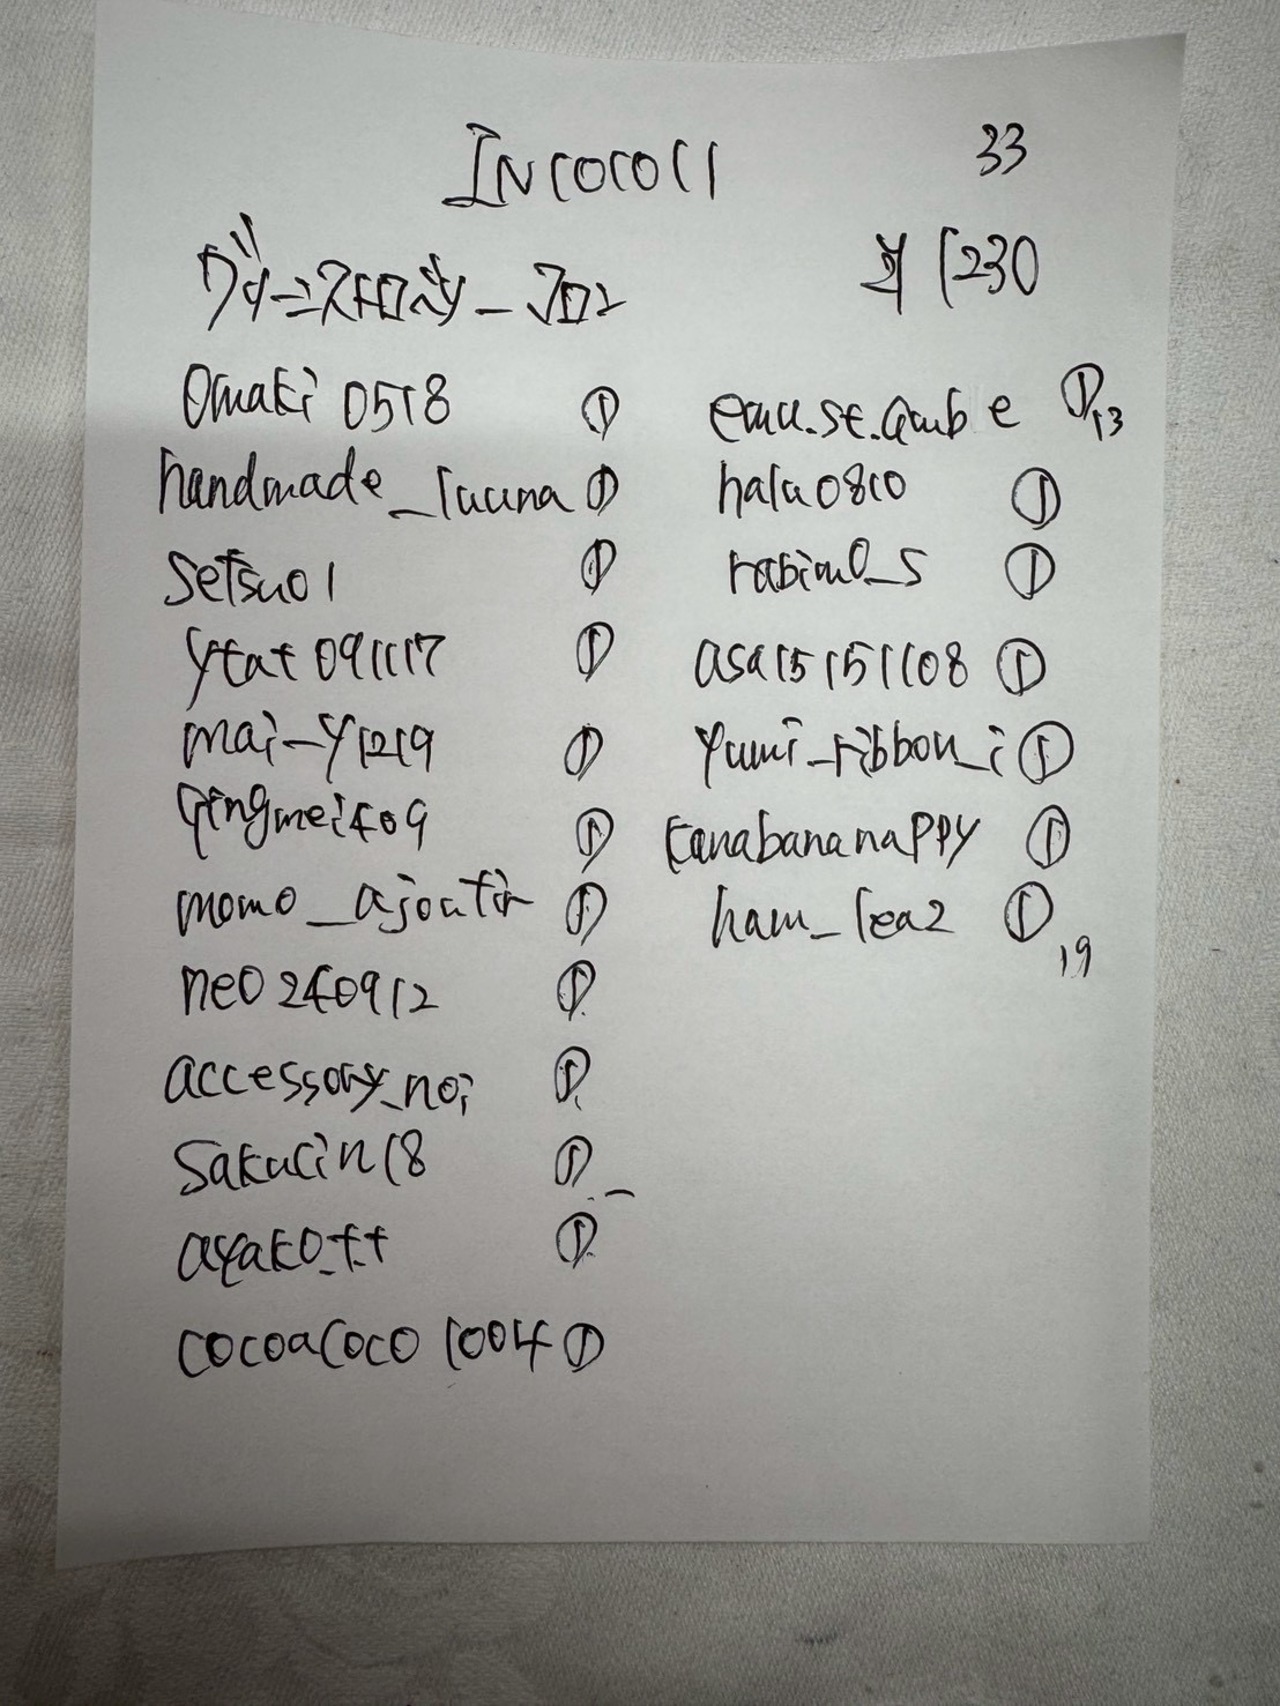 INCOCOCI 33
ヴィーニストロベリーメロン ¥1230
omaki0518 ①
handmade_luuna ①
setsuo1 ①
ytat091117 ①
mai-y1219 ①
qingmei409 ①
momo_ajoutir ①
neo240912 ①
accessory_noi ①
sakurin18 ①
ayako.t.t ①
cocoacoco1004 ①
emu.st.amb e ① 13
halu0810 ①
rabim0_s ①
asa15151108 ①
yumi_ribbon_i ①
kanabananappy ①
ham_lea2 ① 19